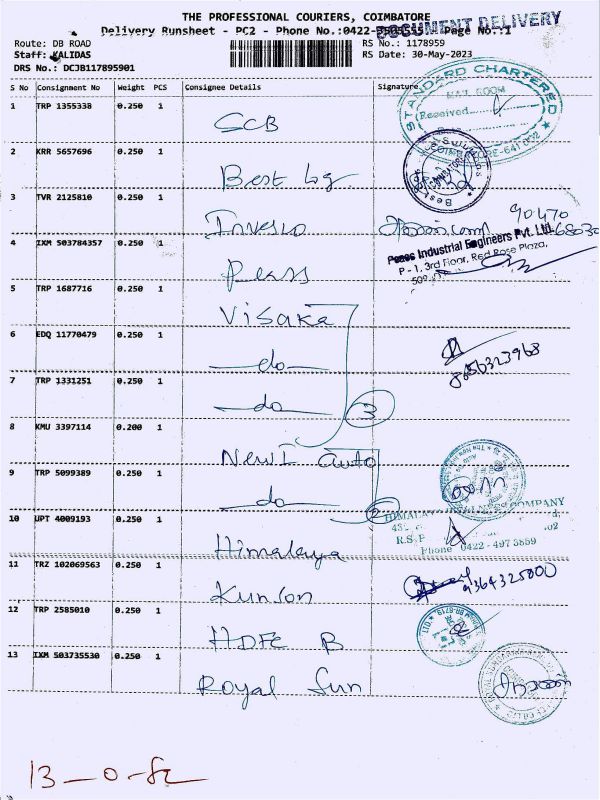 THE PROFESSIONAL COURIERS, COIMBATORE
DOCUMENT DELIVERY
Delivery Runsheet - PC2 - Phone No.:0422- Page No.:1
Route: DB ROAD RS No.: 1178959
Staff: KALIDAS RS Date: 30-May-2023
DRS No.: DCJB117895901
S No Consignment No Weight PCS Consignee Details Signature
STANDARD CHARTERED
MAIL ROOM
Received
COIMBATORE-641 002
1 TRP 1355338 0.250 1 SCB
2 KRR 5657696 0.250 1 Best Lg
3 TVR 2125810 0.250 1 Invesco
90470
68030
4 IXM 503784357 0.250 1 Peass
Peass Industrial Engineers Pvt. Ltd.
P - 1, 3rd Floor, Red Rose Plaza,
5 TRP 1687716 0.250 1 Visaka
6 EDQ 11770479 0.250 1 do
8056323968
7 TRP 1331251 0.250 1 do 3
8 KMU 3397114 0.200 1 New I auto
9 TRP 5099389 0.250 1 do 2
10 UPT 4009193 0.250 1 Himalaya
HIMALAYA WELLNESS COMPANY
R.S.P
Phone 0422 - 497 3859
11 TRZ 102069563 0.250 1 Kunson
9364325800
12 TRP 2585010 0.250 1 HDFC B
13 IXM 503735530 0.250 1 Royal Sun
13-0-82